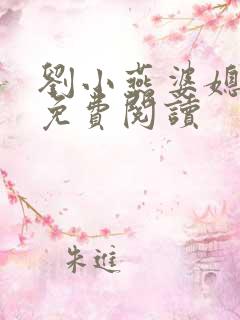 劉小燕婆媳
免費閱讀
朱進